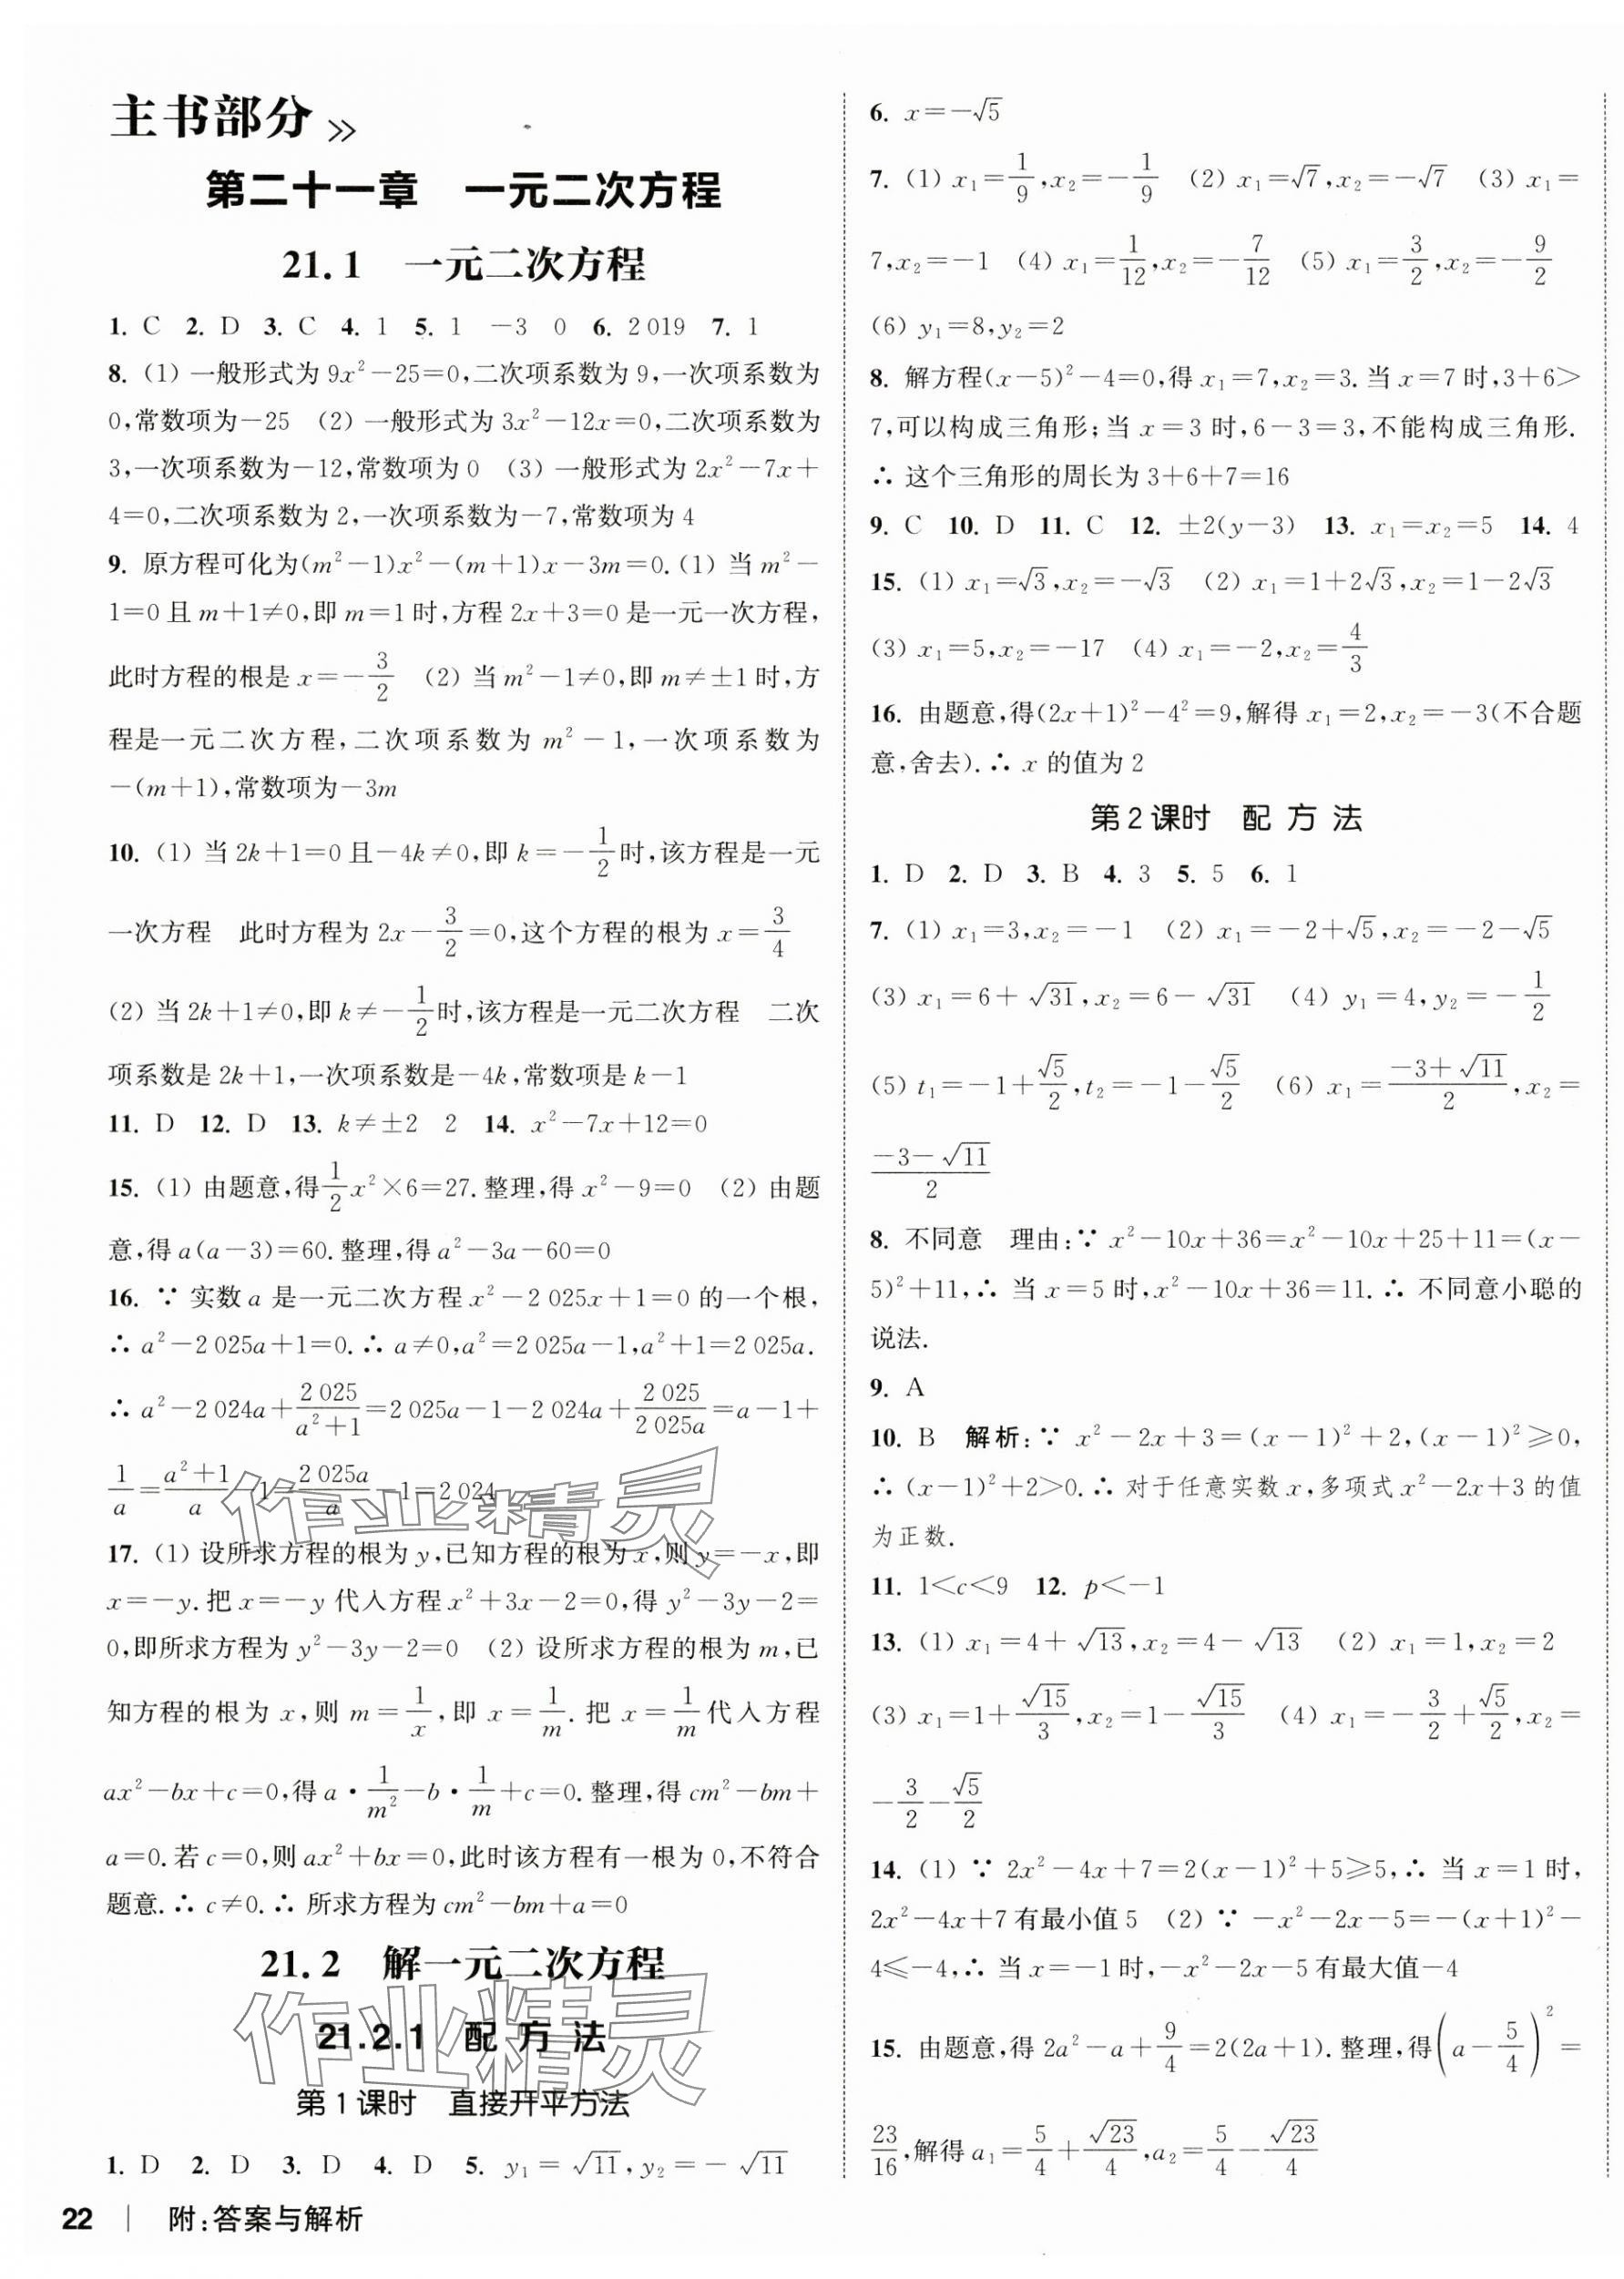 主书部分 >>
第二十一章 一元二次方程
21.1 一元二次方程
1. C 2. D 3. C 4. 1 5. 1 -3 0 6. 2 019 7. 1
8. (1) 一般形式为 9x²-25=0,二次项系数为 9,一次项系数为
0,常数项为-25 (2) 一般形式为 3x²-12x=0,二次项系数为
3,一次项系数为-12,常数项为 0 (3) 一般形式为 2x²-7x+
4=0,二次项系数为 2,一次项系数为-7,常数项为 4
9. 原方程可化为(m²-1)x²-(m+1)x-3m=0. (1) 当 m²-
1=0 且 m+1≠0,即 m=1 时,方程 2x+3=0 是一元一次方程,
此时方程的根是 x=-3/2 (2) 当 m²-1≠0,即 m≠±1 时,方
程是一元二次方程,二次项系数为 m²-1,一次项系数为
-(m+1),常数项为-3m
10. (1) 当 2k+1=0 且-4k≠0,即 k=-1/2时,该方程是一元
一次方程 此时方程为 2x-3/2=0,这个方程的根为 x=3/4
(2) 当 2k+1≠0,即 k≠-1/2时,该方程是一元二次方程 二次
项系数是 2k+1,一次项系数是-4k,常数项是 k-1
11. D 12. D 13. k≠±2 2 14. x²-7x+12=0
15. (1) 由题意,得1/2x²×6=27. 整理,得 x²-9=0 (2) 由题
意,得 a(a-3)=60. 整理,得 a²-3a-60=0
16. ∵ 实数 a 是一元二次方程 x²-2 025x+1=0 的一个根,
∴ a²-2 025a+1=0. ∴ a≠0,a²=2 025a-1,a²+1=2 025a.
∴ a²-2 024a+2 025/(a²+1)=2 025a-1-2 024a+2 025/2 025a=a-1+
1/a=(a²+1)/a-1=2 025a/a-1=2 024
17. (1) 设所求方程的根为 y,已知方程的根为 x,则 y=-x,即
x=-y. 把 x=-y 代入方程 x²+3x-2=0,得 y²-3y-2=
0,即所求方程为 y²-3y-2=0 (2) 设所求方程的根为 m,已
知方程的根为 x,则 m=1/x,即 x=1/m. 把 x=1/m代入方程
ax²-bx+c=0,得 a·1/m²-b·1/m+c=0. 整理,得 cm²-bm+
a=0. 若 c=0,则 ax²+bx=0,此时该方程有一根为 0,不符合
题意. ∴ c≠0. ∴ 所求方程为 cm²-bm+a=0
21.2 解一元二次方程
21.2.1 配方法
第1课时 直接开平方法
1. D 2. D 3. D 4. D 5. y₁=√11,y₂=-√11
22 | 附:答案与解析
6. x=-√5
7. (1) x₁=1/9,x₂=-1/9 (2) x₁=√7,x₂=-√7 (3) x₁=
7,x₂=-1 (4) x₁=1/12,x₂=-7/12 (5) x₁=3/2,x₂=-9/2
(6) y₁=8,y₂=2
8. 解方程(x-5)²-4=0,得 x₁=7,x₂=3. 当 x=7 时,3+6>
7,可以构成三角形;当 x=3 时,6-3=3,不能构成三角形.
∴ 这个三角形的周长为 3+6+7=16
9. C 10. D 11. C 12. ±2(y-3) 13. x₁=x₂=5 14. 4
15. (1) x₁=√3,x₂=-√3 (2) x₁=1+2√3,x₂=1-2√3
(3) x₁=5,x₂=-17 (4) x₁=-2,x₂=4/3
16. 由题意,得(2x+1)²-4²=9,解得 x₁=2,x₂=-3(不合题
意,舍去). ∴ x 的值为 2
第2课时 配方法
1. D 2. D 3. B 4. 3 5. 5 6. 1
7. (1) x₁=3,x₂=-1 (2) x₁=-2+√5,x₂=-2-√5
(3) x₁=6+√31,x₂=6-√31 (4) y₁=4,y₂=-1/2
(5) t₁=-1+√5/2,t₂=-1-√5/2 (6) x₁=(-3+√11)/2,x₂=
(-3-√11)/2
8. 不同意 理由:∵ x²-10x+36=x²-10x+25+11=(x-
5)²+11,∴ 当 x=5 时,x²-10x+36=11. ∴ 不同意小聪的
说法.
9. A
10. B 解析:∵ x²-2x+3=(x-1)²+2,(x-1)²≥0,
∴ (x-1)²+2>0. ∴ 对于任意实数 x,多项式 x²-2x+3 的值
为正数.
11. 1<c<9 12. p<-1
13. (1) x₁=4+√13,x₂=4-√13 (2) x₁=1,x₂=2
(3) x₁=1+√15/3,x₂=1-√15/3 (4) x₁=-3/2+√5/2,x₂=
-3/2-√5/2
14. (1) ∵ 2x²-4x+7=2(x-1)²+5≥5,∴ 当 x=1 时,
2x²-4x+7 有最小值 5 (2) ∵ -x²-2x-5=-(x+1)²-
4≤-4,∴ 当 x=-1 时,-x²-2x-5 有最大值-4
15. 由题意,得 2a²-a+9/4=2(2a+1). 整理,得(a-5/4)²=
23/16,解得 a₁=5/4+√23/4,a₂=5/4-√23/4
作业精灵
作业精灵